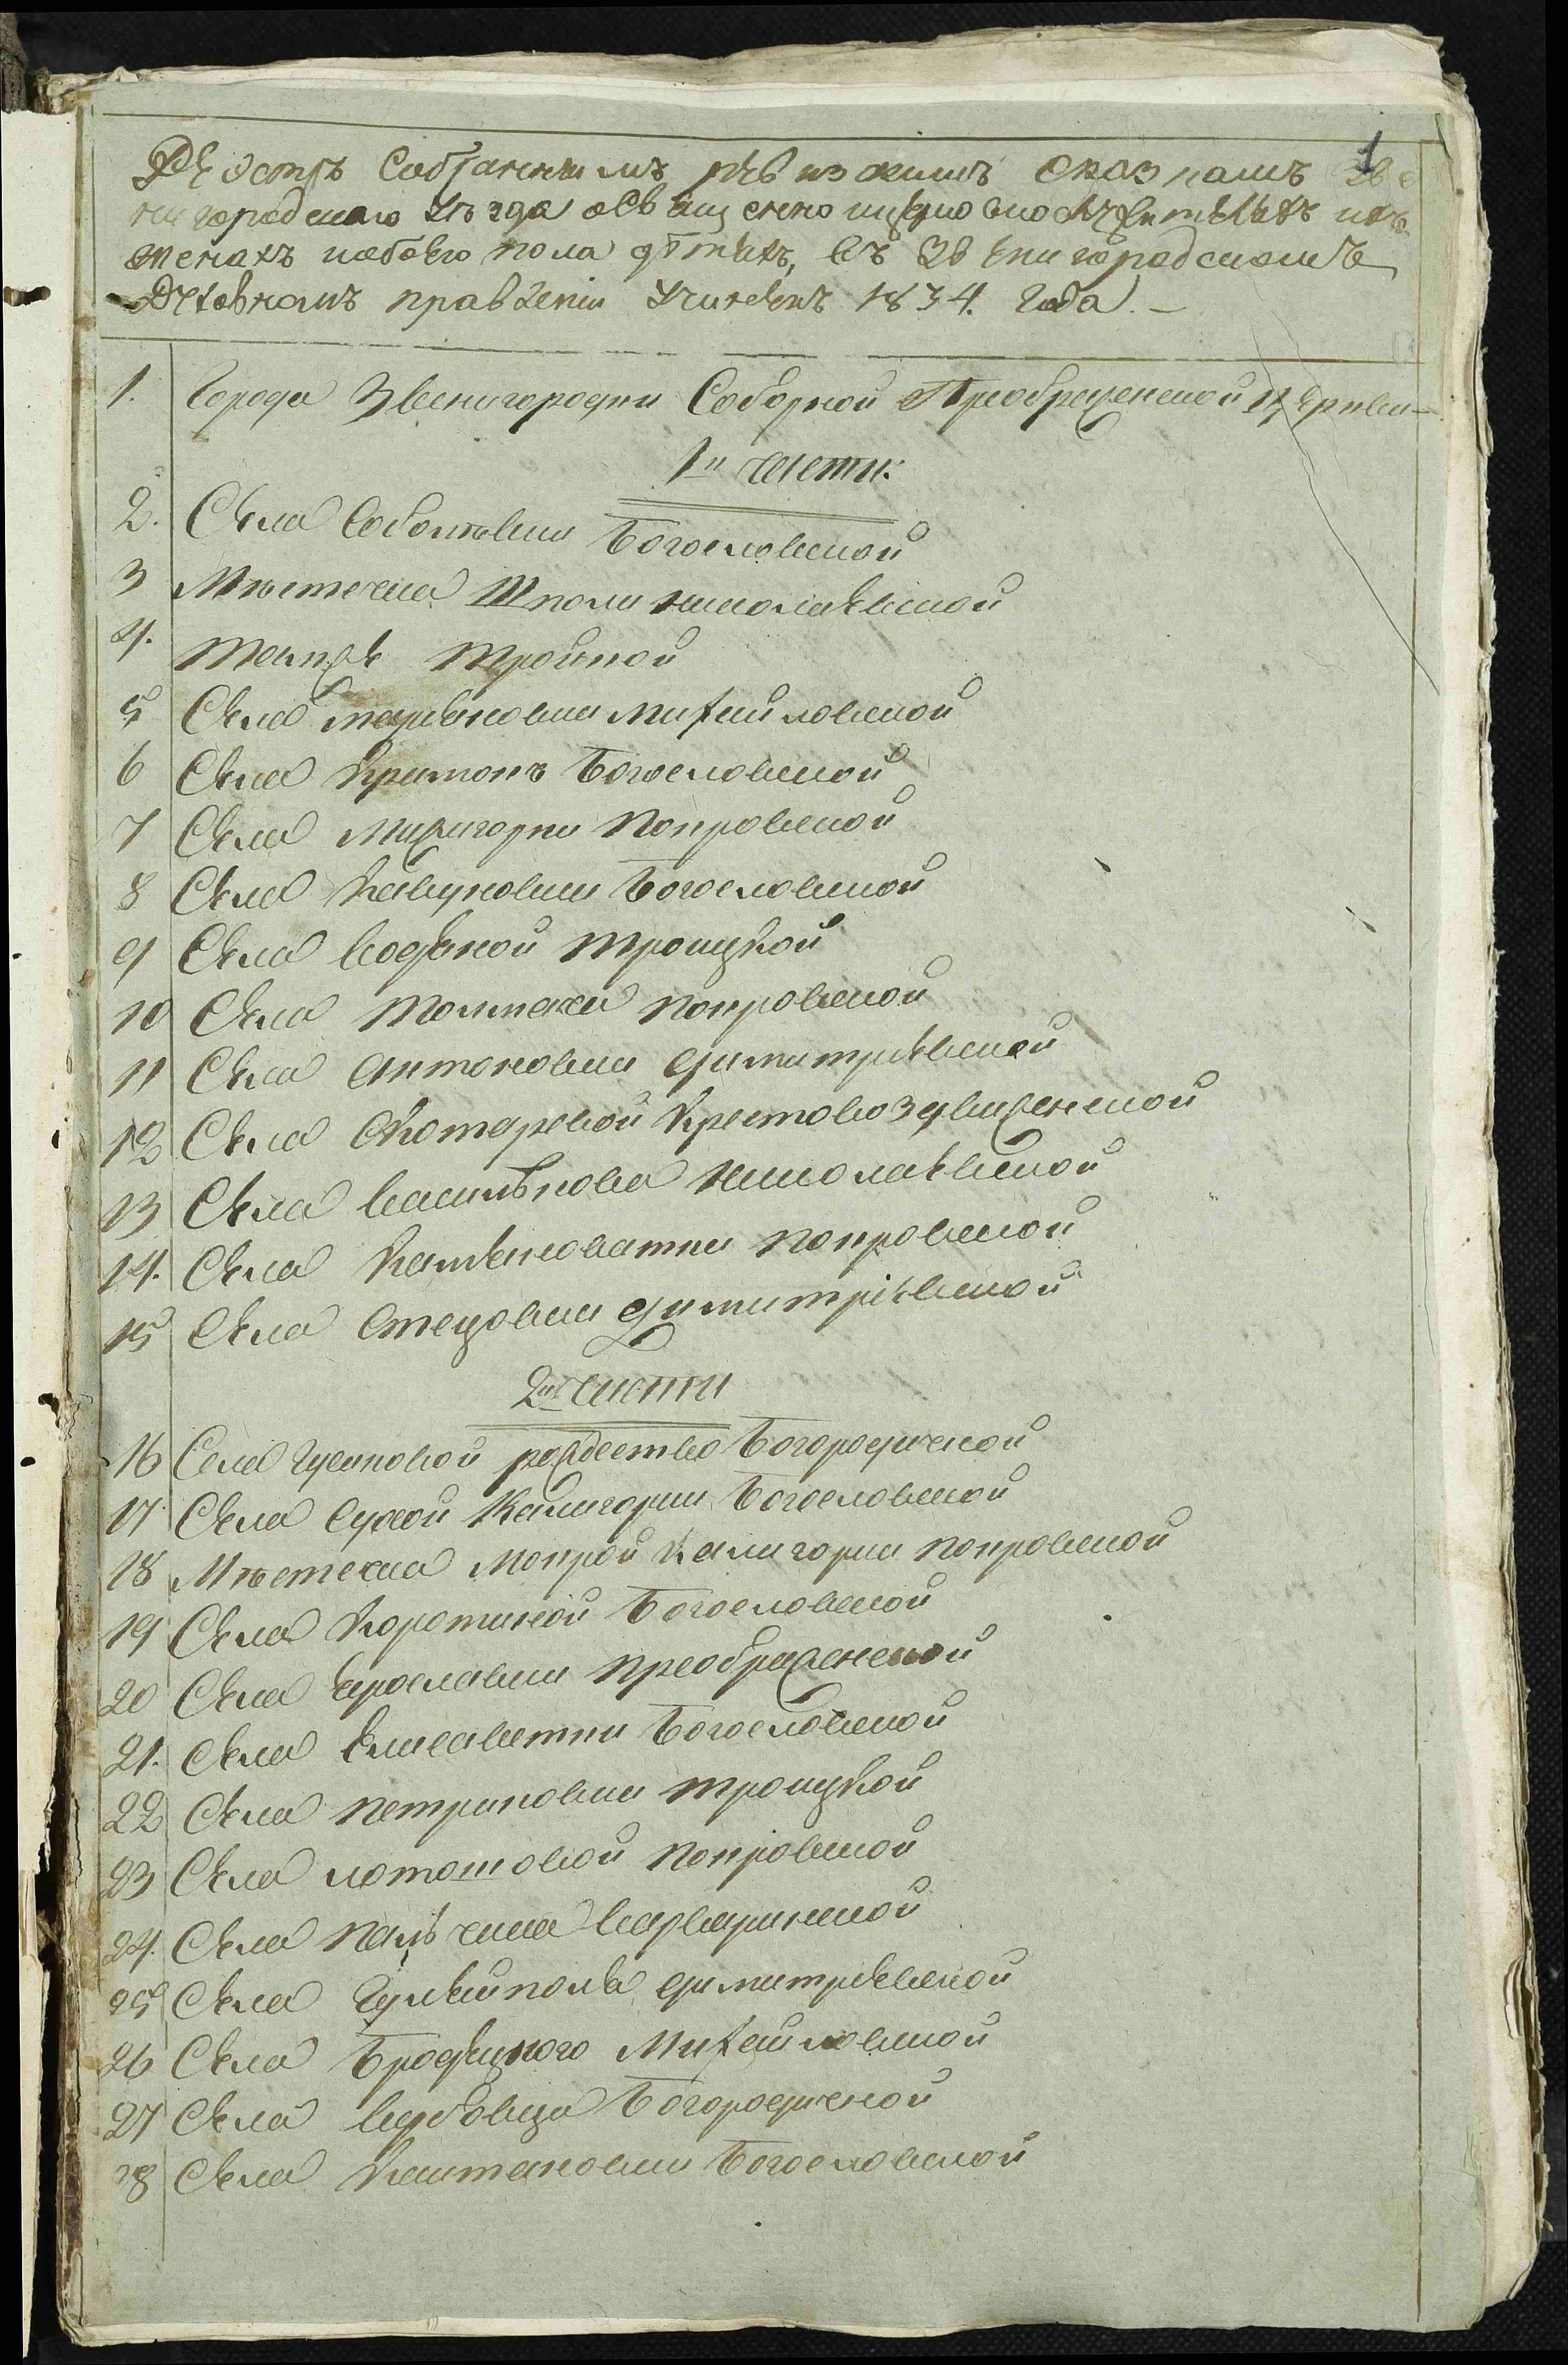 1
Реэстръ Собраннымъ ревизскимъ сказкамъ Зве
нигородскаго уѣзда о священно и церковнослужителяхъ ихъ
женахъ и обоего пола дѣтяхъ, въ Звенигородскомъ
Духовномъ правленіи учиненъ 1834. года. —
1. Города Звенигородки Соборной Преображенской церкви —
1й части:
2. Села Соболевки Богословской
3 Мѣстечка Шполи николаевской
4. Тамъ же троицкой
5 Села марьяновки михайловской
6 Села кримокъ Богословской
7 Села Межигорки покровской
8 Села кавуновки Богословской
9 Села водяной троицкой
10 Села толмача покровской
11 Села антоновки димитріевской
12 Села скотаревой крестовоздвиженской
13 Села василькова николаевской
14. Села каменоватки покровской
15 Села стецовки димитріевской
2й части
16 Села гусаковой рождества Богородичной
17 Села сухой калигорки Богословской
18 Мѣстечка мокрой калигорки покровской
19 Села коротиной Богословской
20 Села ярославки преображенской
21. Села елисаветки Богословской
22 Села петриковки троицкой
23 Села лоташовой покровской
24. Села пальчика варваринской
25 Села гуляйполя димитріевской
26 Села Бродецкого Михайловской
27 Села вербовца Богородичной
28 Села каштановки Богословской